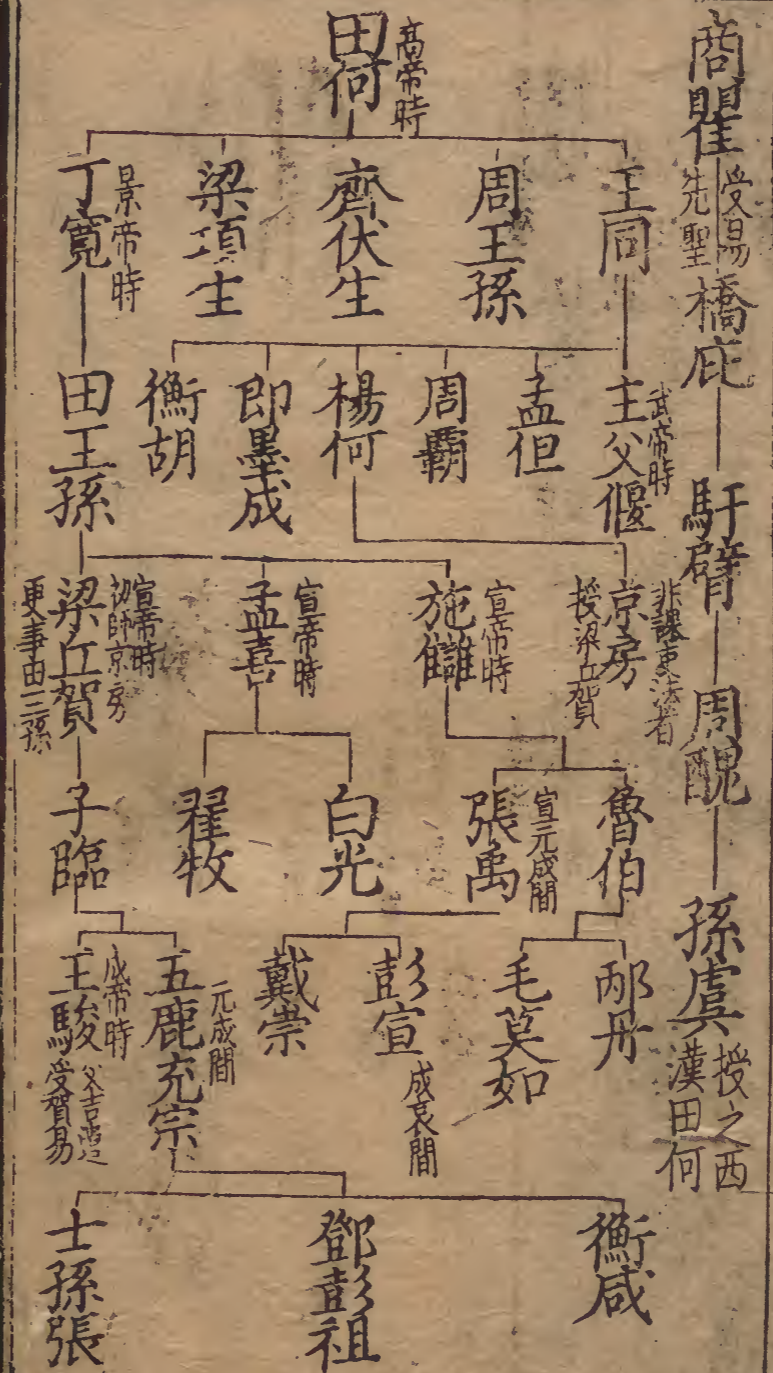 商瞿
受易
先聖
橋庇
馯臂
周醜
孫虞
授之西
漢田何
田何
高帝時
王同
周王孫
齊伏生
梁項生
丁寬
景帝時
主父偃
武帝時
孟但
周霸
楊何
即墨成
衡胡
田王孫
京房
非課吏法者
授梁丘賀
施讎
宣帝時
孟喜
宣帝時
梁丘賀
宣帝時
初師京房
更事田王孫
魯伯
張禹
宣元成間
白光
翟牧
子臨
邴丹
毛莫如
彭宣
成哀間
戴崇
五鹿充宗
元成間
王駿
成帝時
父吉遣
受賀易
衡咸
鄧彭祖
士孫張